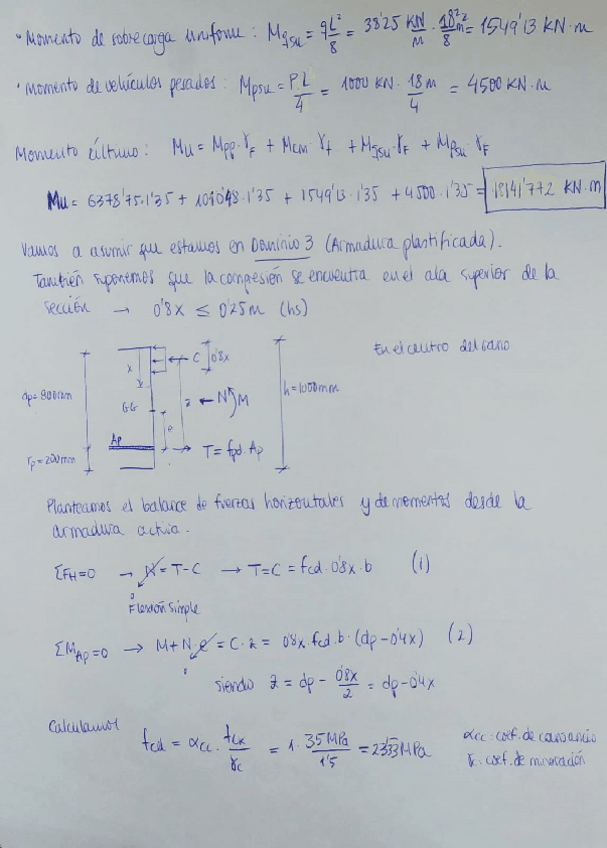 • Momento de sobrecarga uniforme : Mqsu = qL²/8 = 38'25 KN/m · 18² m²/8 = 1549'13 KN·m
• Momento de vehículos pesados : Mpsu = P·L/4 = 1000 KN · 18m/4 = 4500 KN·m
Momento último: Mu = Mpp·γF + Mcm·γf + Mqsu·γF + Mpsu·γF
Mu = 6378'75·1'35 + ·1'35 + 1549'13·1'35 + 4500·1'35 = KN·m
Vamos a asumir que estamos en Dominio 3 (Armadura plastificada).
También suponemos que la compresión se encuentra en el ala superior de la
sección → 0'8x ≤ 0'25m (hs)
En el centro del vano
dp = 800mm
rp = 200mm
x
GG
Ap
C
0'8x
z
e
N
M
T = fpd·Ap
h = 1000mm
Planteamos el balance de fuerzas horizontales y de momentos desde la
armadura activa.
ΣFH=0 → N = T-C → T=C = fcd·0'8x·b (1)
0
Flexión Simple
ΣMAp=0 → M+N·e = C·z = 0'8x·fcd·b·(dp-0'4x) (2)
0
siendo z = dp - 0'8x/2 = dp-0'4x
Calculamos
fcd = αcc · fck/γc = 1· 35MPa/1'5 = 23'33 MPa
αcc: coef. de cansancio
γc: coef. de minoración